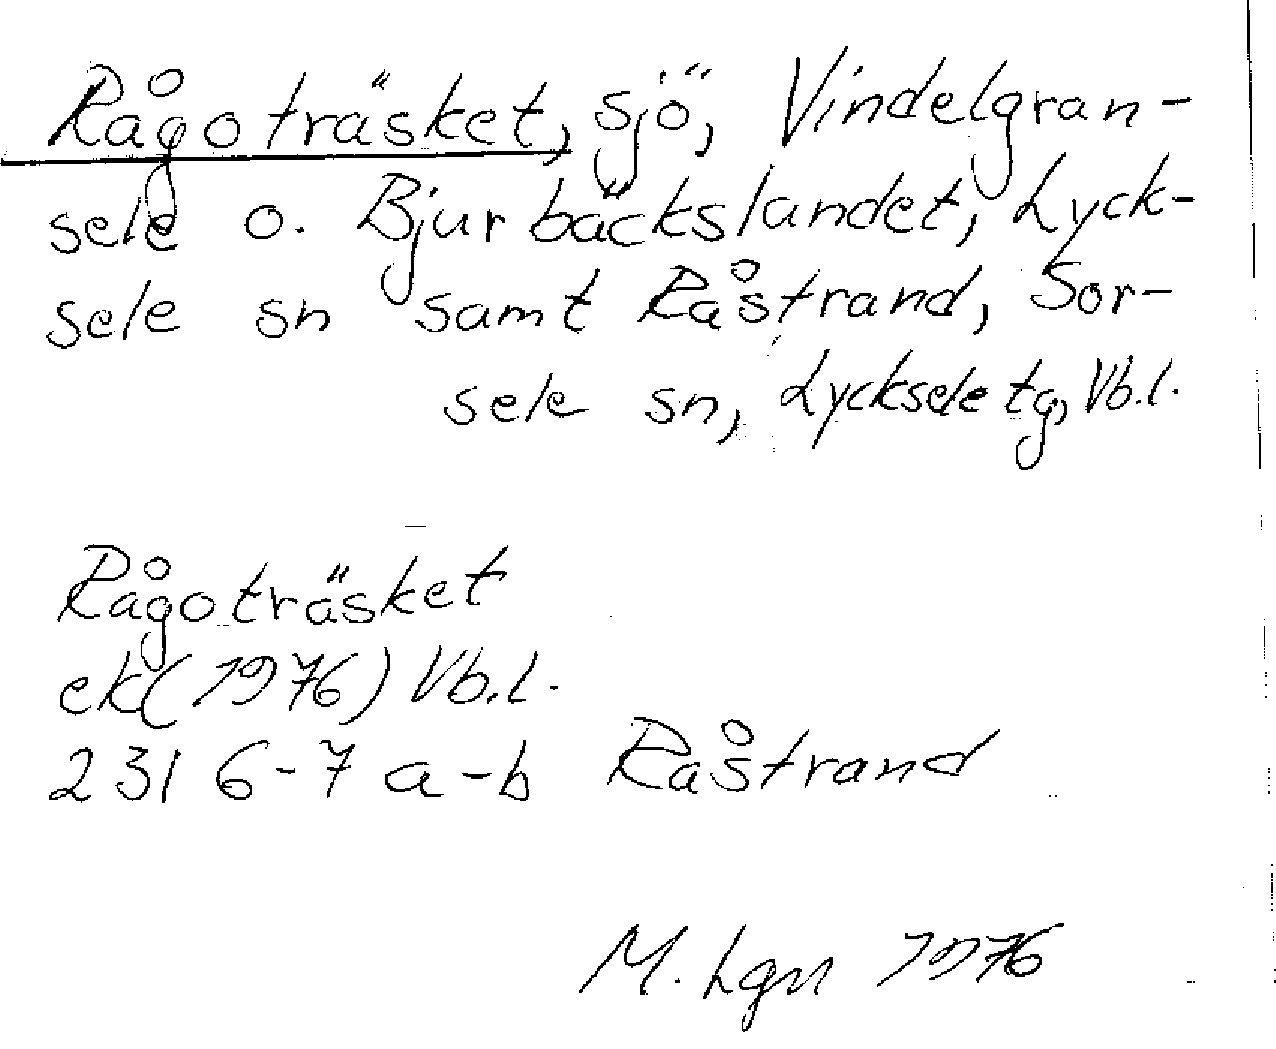 Rågoträsket, sjö, Vindelgran-
sele o. Bjurbäckslandet, Lyck-
sele sn samt Råstrand, Sor-
sele sn, Lycksele tg, Vb.l.
Rågoträsket
ek (1976) Vb.l.
231 6-7 a-b Råstrand
M. Lgn 1976